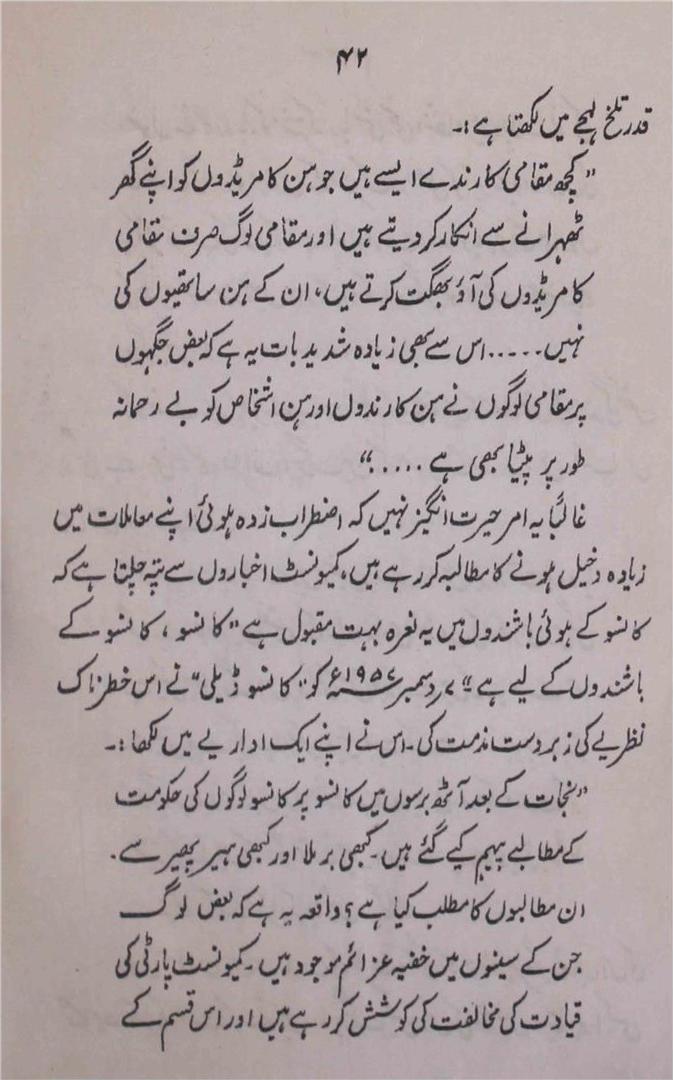 ۴۲
قدر تلخ لہجے میں لکھتا ہے:۔
”کچھ مقامی کارندے ایسے ہیں جو ہن کامریڈوں کو اپنے گھر
ٹھہرانے سے انکار کر دیتے ہیں اور مقامی لوگ صرف مقامی
کامریڈوں کی آؤ بھگت کرتے ہیں، ان کے ہن ساتھیوں کی
نہیں.....اس سے بھی زیادہ شدید بات یہ ہے کہ بعض جگہوں
پر مقامی لوگوں نے ہن کارندوں اور ہن اشخاص کو بے رحمانہ
طور پر پیٹا بھی ہے .....“
غالباً یہ امر حیرت انگیز نہیں کہ اضطراب زدہ ہوئی اپنے معاملات میں
زیادہ دخیل ہونے کا مطالبہ کر رہے ہیں، کمیونسٹ اخباروں سے پتہ چلتا ہے کہ
کانسو کے ہوئی باشندوں میں یہ نعرہ بہت مقبول ہے ”کانسو، کانسو کے
باشندوں کے لیے ہے“ ۷ر دسمبر ۱۹۵۷ء کو ”کانسو ڈیلی“ نے اس خطرناک
نظریے کی زبردست مذمت کی۔ اس نے اپنے ایک اداریے میں لکھا:۔
”نجات کے بعد آٹھ برسوں میں کانسو پر کانسو لوگوں کی حکومت
کے مطالبے پیہم کیے گئے ہیں۔ کبھی برملا اور کبھی ہیر پھیر سے۔
ان مطالبوں کا مطلب کیا ہے؟ واقعہ یہ ہے کہ بعض لوگ
جن کے سینوں میں خفیہ عزائم موجود ہیں۔ کمیونسٹ پارٹی کی
قیادت کی مخالفت کی کوشش کر رہے ہیں اور اس قسم کے